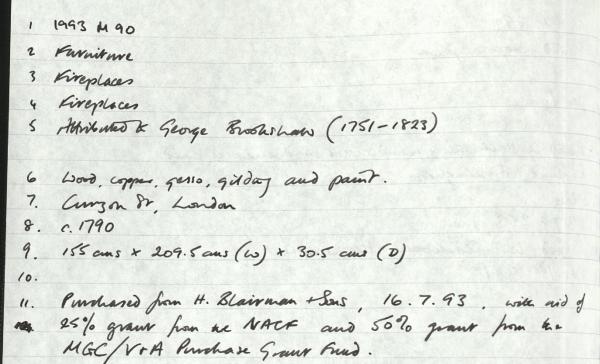 1 1993 M 90
2 Furniture
3 Fireplaces
4 Fireplaces
5 Attributed to George Brookshaw (1751-1823)
6 Wood, copper, gesso, gilding and paint.
7. Curzon St, London
8. c. 1790
9. 155 cms x 209.5 cms (W) x 30.5 cms (D)
10.
11. Purchased from H. Blairman + Sons, 16.7.93. with aid of
25% grant from the NACF and 50% grant from the
MGC/V+A Purchase Grant Fund.